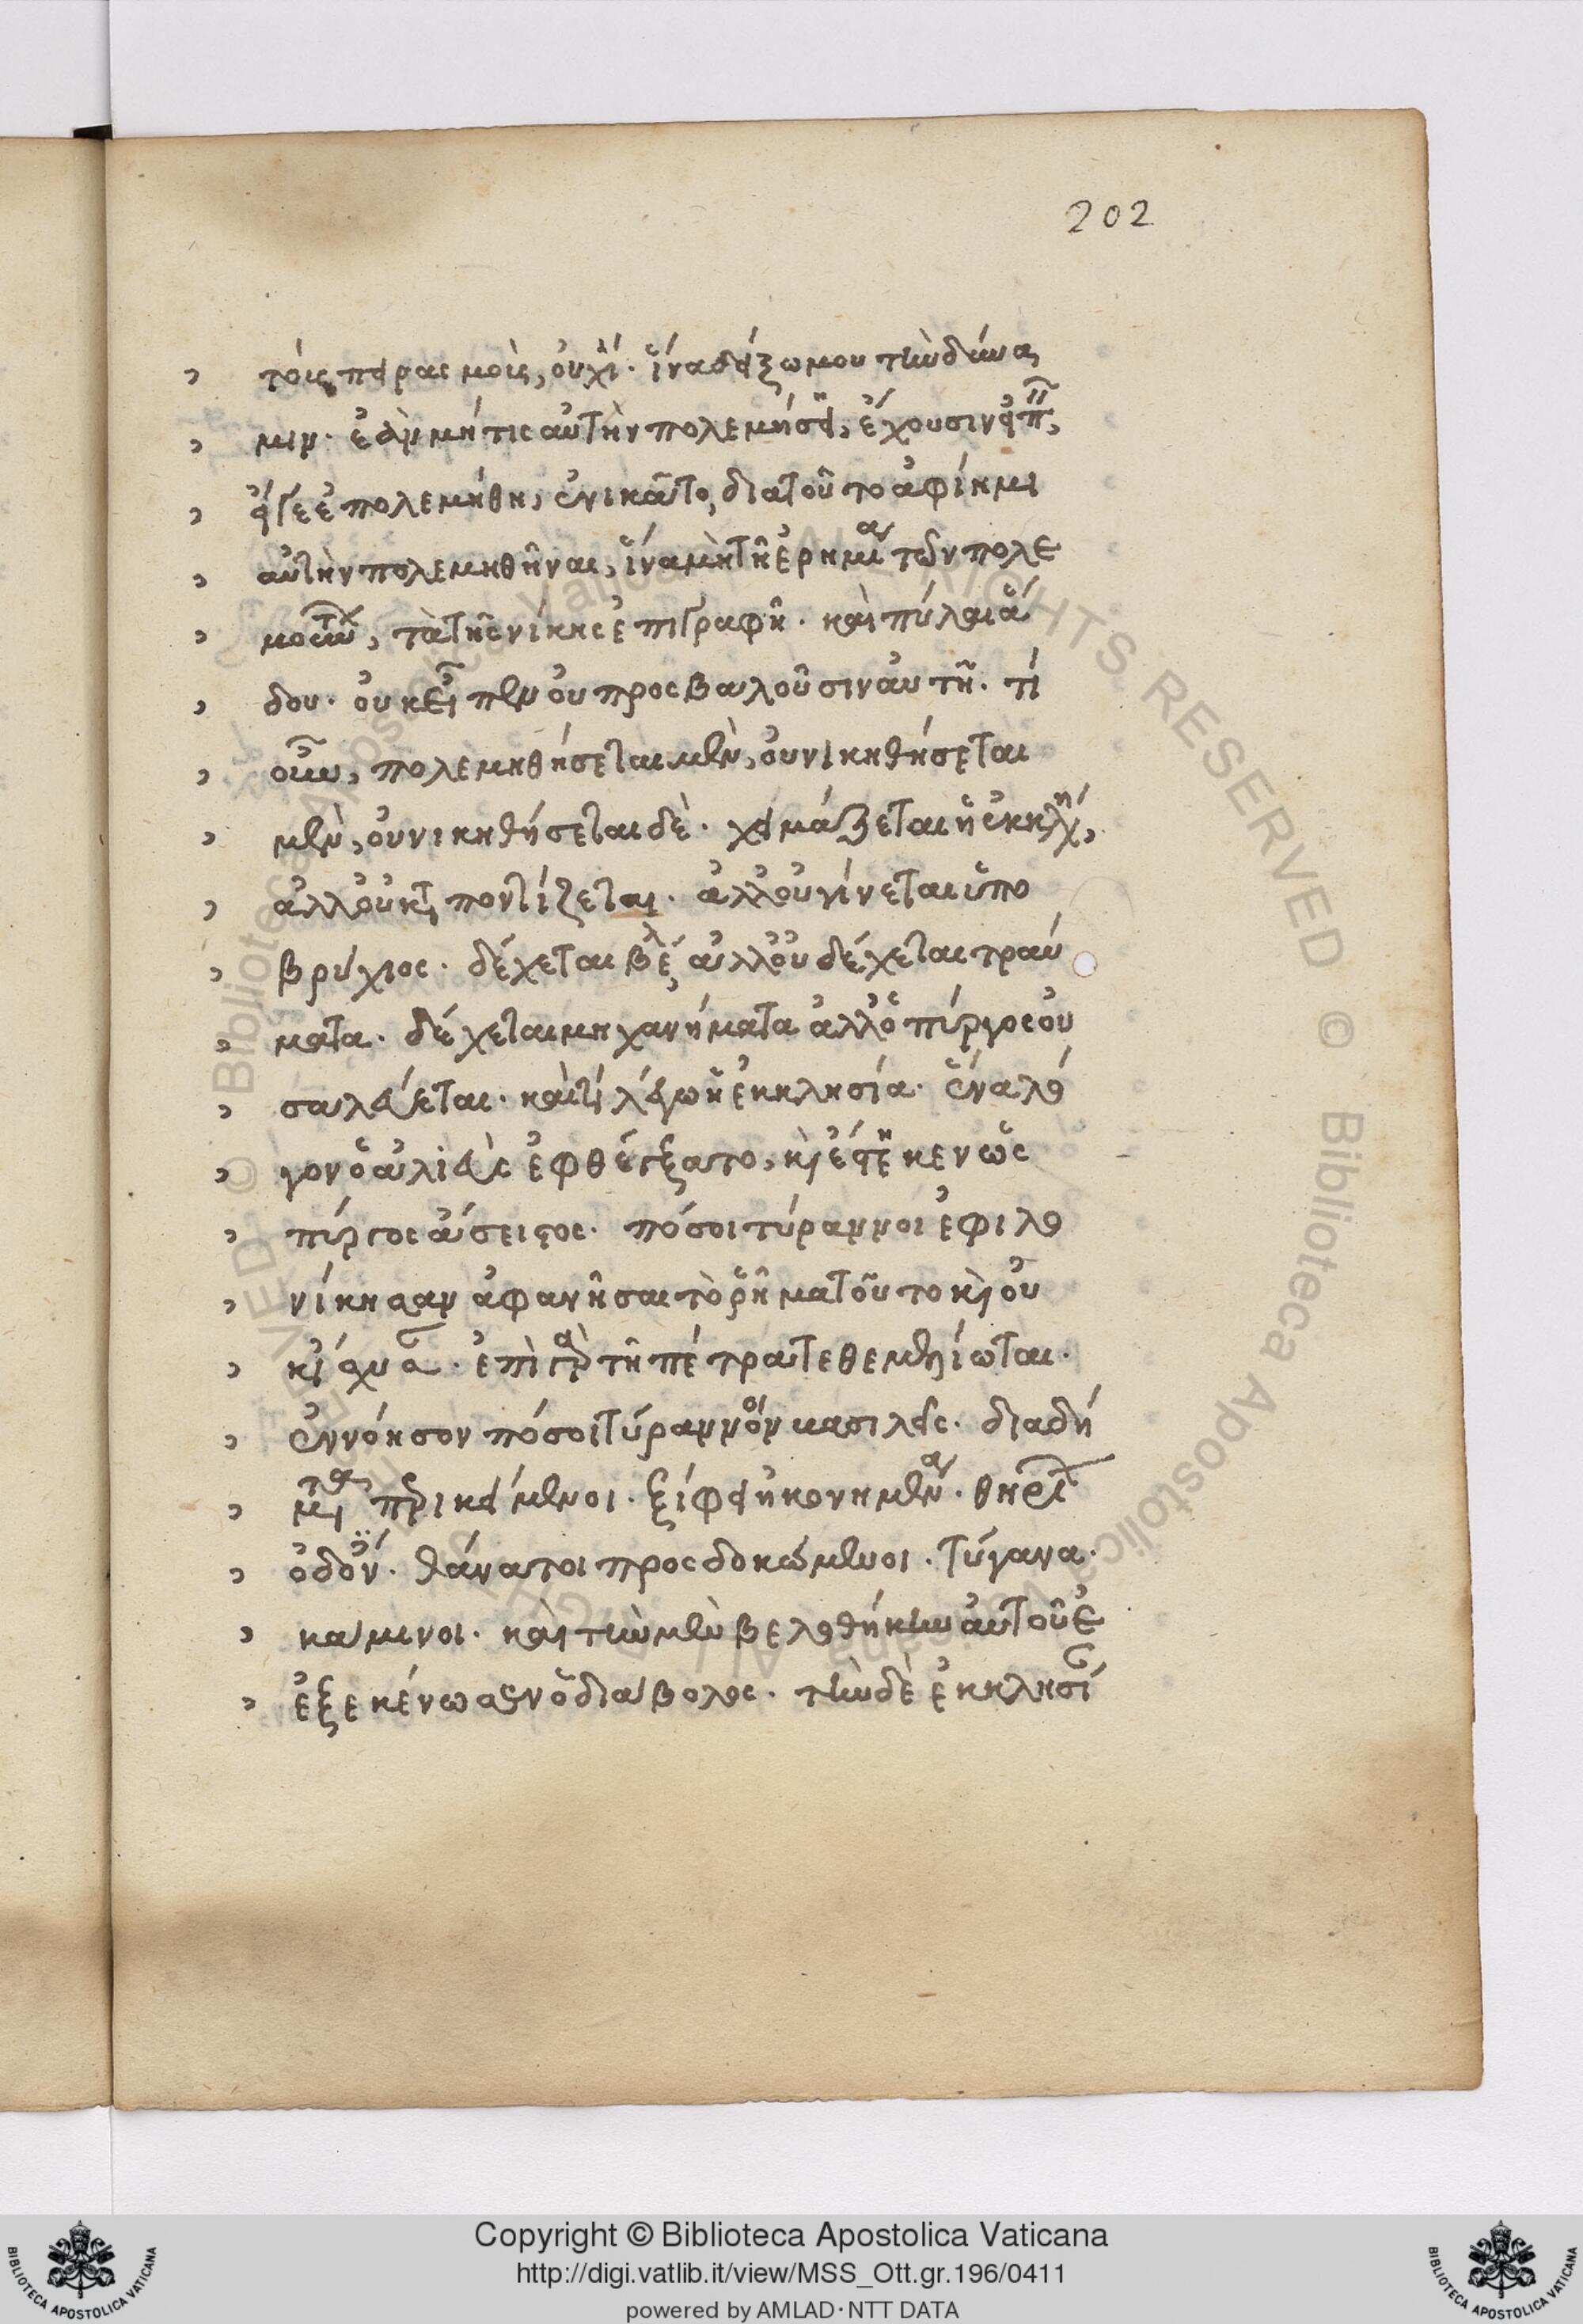 202
τοὺς πειρασμοὺς, οὐχί· ἵνα δείξω μου τὴν δύνα
μιν· ἐὰν μή τις αὐτὴν πολεμήσει, ἔχουσιν εἰπεῖν,
εἴγε ἐπολεμήθη, ἐνικᾶτο, διὰ τοῦτο ἀφίημι
αὐτὴν πολεμηθῆναι, ἵνα μὴ τῇ ἐρημίᾳ τῶν πολε
μούντων, τὰ τῆς νίκης ἐπιγραφῇ· καὶ πύλαι ἅ
δου· οὐκ εἶπεν οὐ προσβαλοῦσιν αὐτῇ· τί
οὖν, πολεμηθήσεται μὲν, οὐ νικηθήσεται
μὲν, οὐ νικηθήσεται δέ· χειμάζεται ἡ ἐκκλησία,
ἀλλ' οὐ καταποντίζεται· ἀλλ' οὐ γίνεται ὑπο
βρύχιος· δέχεται βέλη ἀλλ' οὐ δέχεται τραύ
ματα· δέχεται μηχανήματα ἀλλ' ὁ πύργος οὐ
σαλεύεται· καὶ τί λέγω ἡ ἐκκλησία· ἕνα λό
γον ὁ ἁλιεὺς ἐφθέγξατο, καὶ ἕστηκεν ὡς
πύργος ἄσειστος· πόσοι τύραννοι ἐφιλο
νίκησαν ἀφανῆσαι τὸ ῥῆμα τοῦτο καὶ οὐκ
ἴσχυσαν· ἐπὶ γὰρ τῇ πέτρα τεθεμελίωται·
ἐννόησον πόσοι τύραννοι βασιλεῖς· διαδή
ματα περικείμενοι· ξίφει ἠκονημένα· θηρίων
ὀδόντες· θάνατοι προσδοκώμενοι· τύγανα·
κάμινοι· καὶ τὴν μὲν βελοθήκην αὐτοῦ ἐ
ἐξεκένωσεν ὁ διάβολος· τὴν δὲ ἐκκλησίαν
Copyright © Biblioteca Apostolica Vaticana
http://digi.vatlib.it/view/MSS_Ott.gr.196/0411
powered by AMLAD · NTT DATA